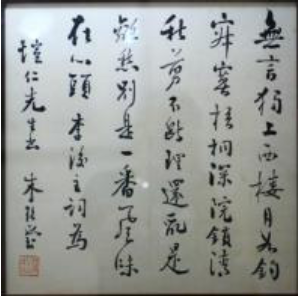 無言獨上西樓月如鉤
寂寞梧桐深院鎖清
秋剪不斷理還亂是
離愁別是一番風味
在心頭 李後主詞為
仁先生 朱玖瑩